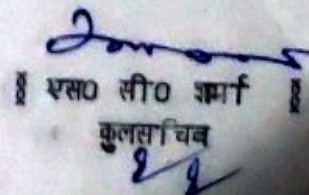 एस0 सी0 शर्मा
कुलसचिव